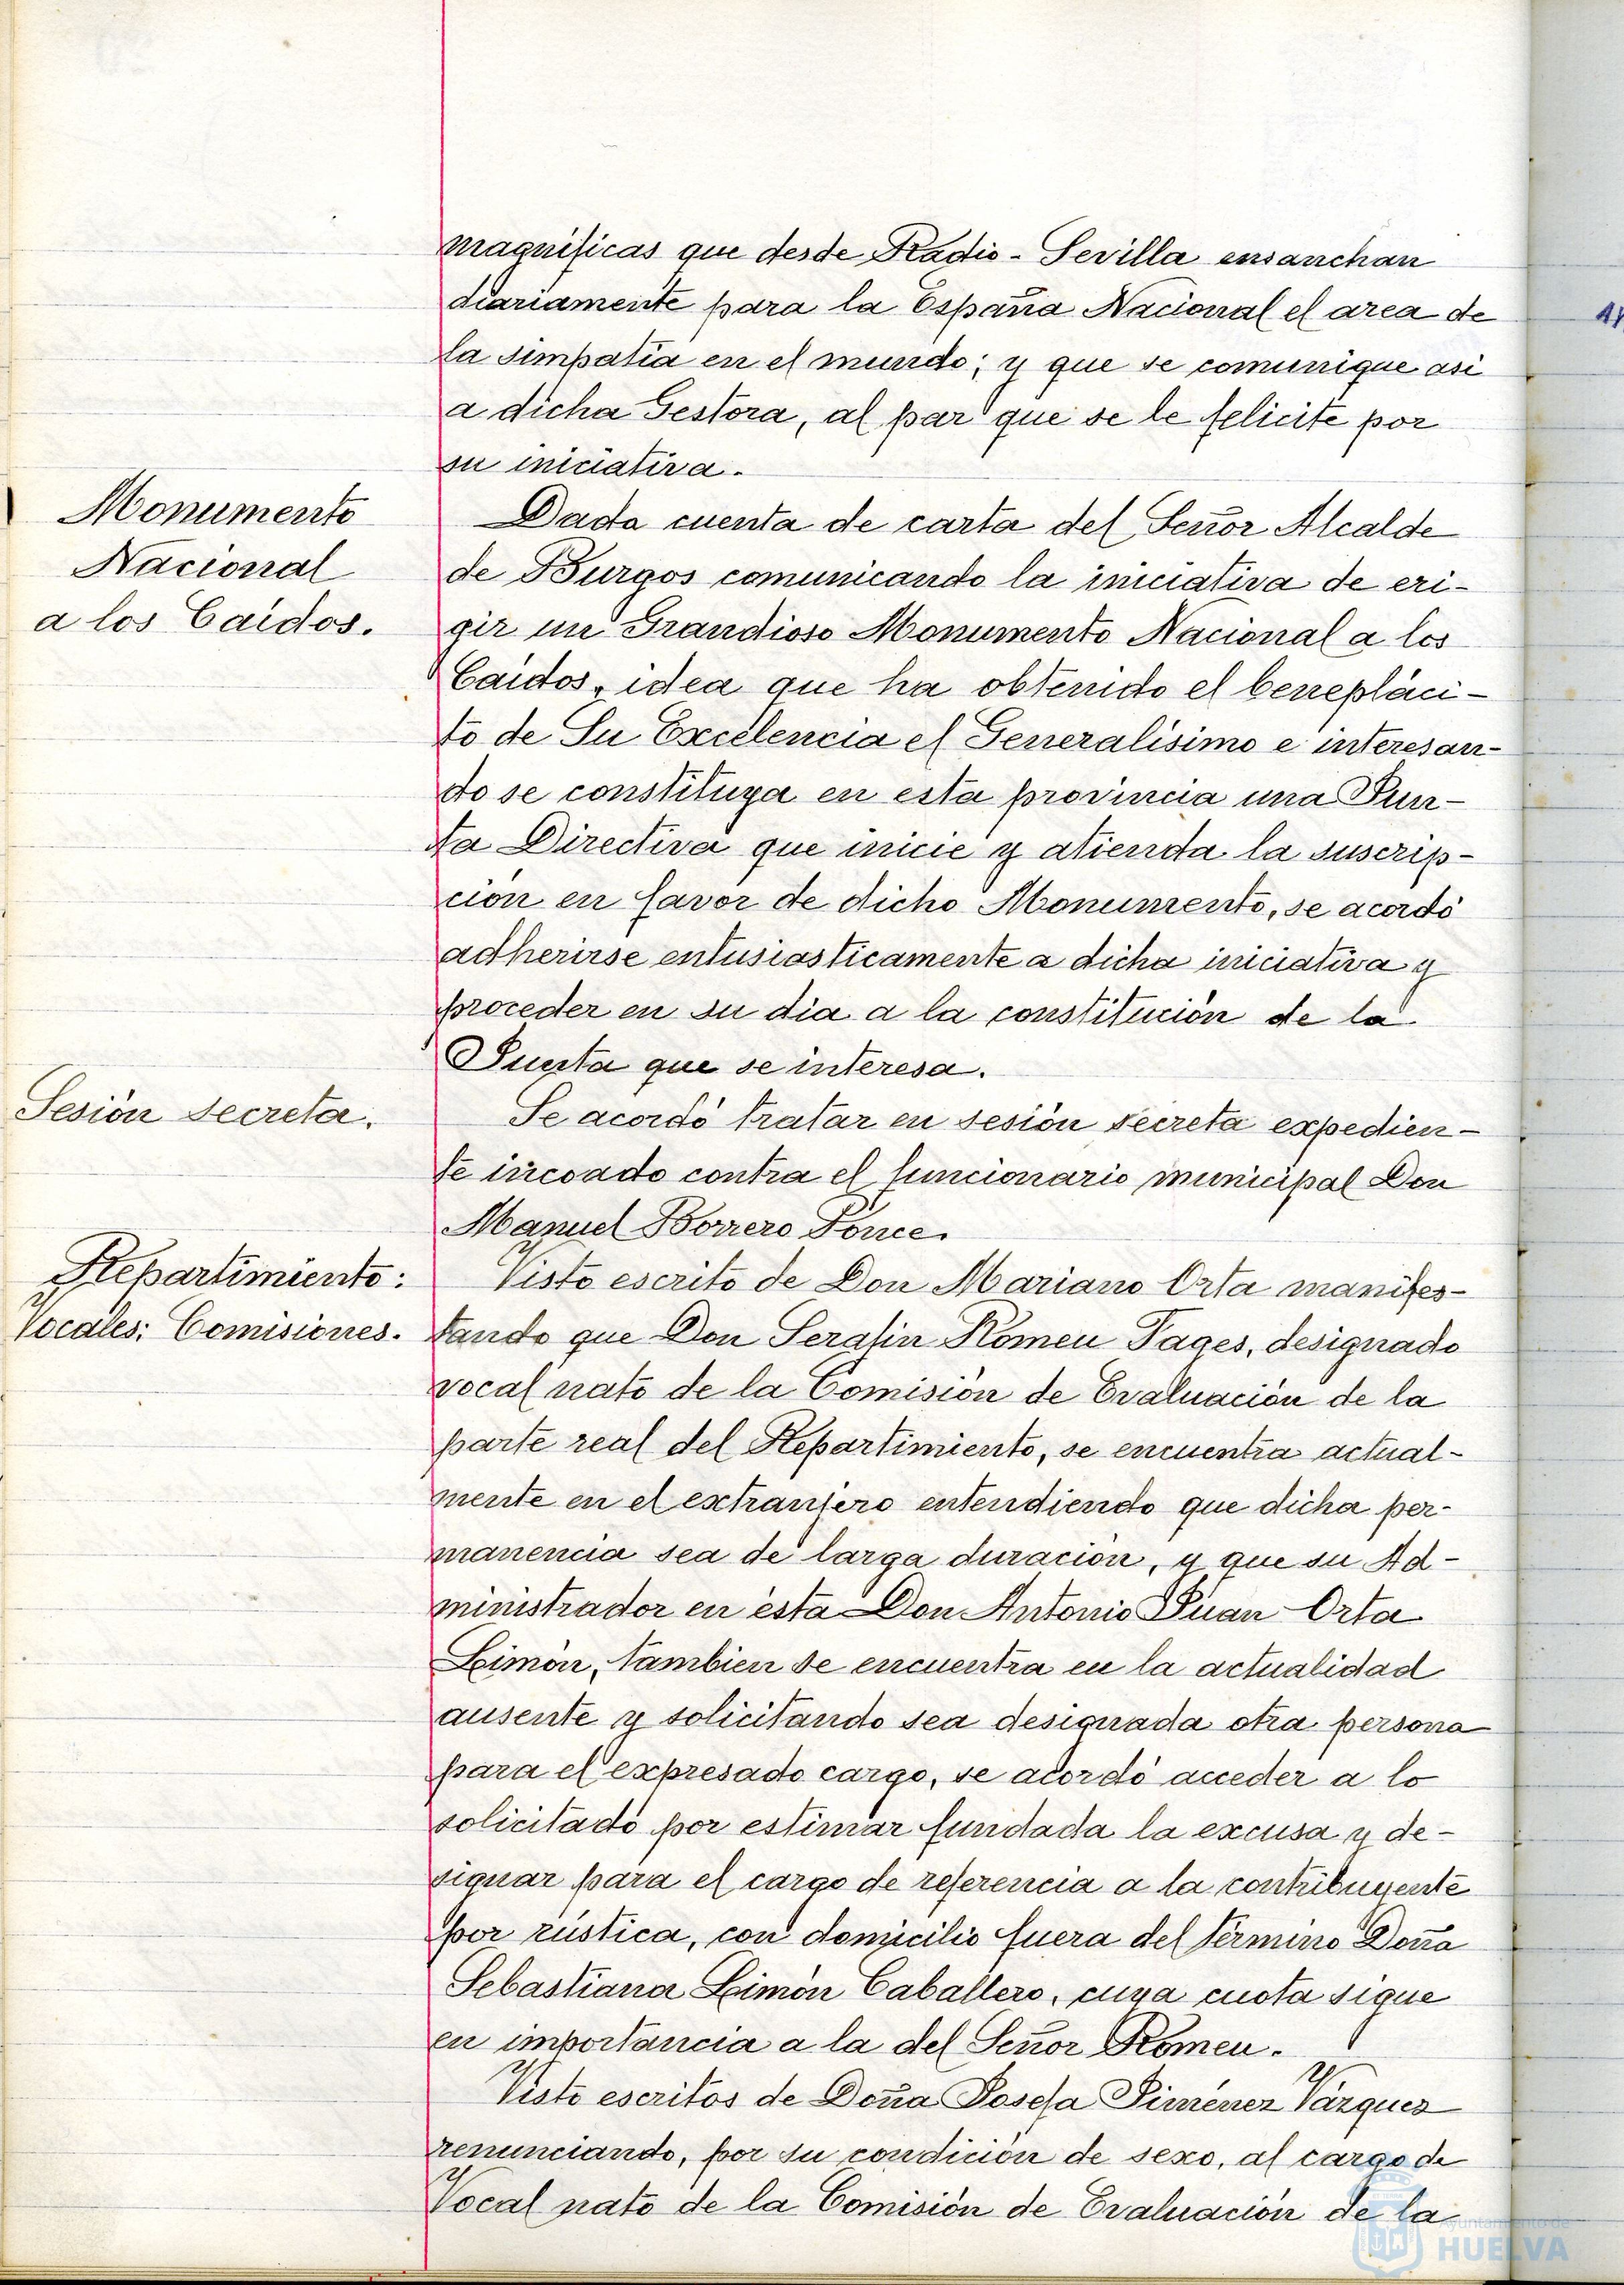 magnificas que desde Radio - Sevilla ensanchan
diariamente para la España Nacional el area de
la simpatia en el mundo; y que se comunique asi
a dicha Gestora, al par que se le felicite por
su iniciativa.
Monumento
Nacional
a los Caidos.
Dada cuenta de carta del Señor Alcalde
de Burgos comunicando la iniciativa de eri-
gir un Grandioso Monumento Nacional a los
Caidos, idea que ha obtenido el beneplàci-
to de Su Excelencia el Generalisimo e interesan-
do se constituya en esta provincia una Jun-
ta Directiva que inicie y atienda la suscrip-
cion en favor de dicho Monumento, se acordó
adherirse entusiasticamente a dicha iniciativa y
proceder en su dia a la constitución de la
Junta que se interesa.
Sesión secreta.
Se acordó tratar en sesión secreta expedien-
te incoado contra el funcionario municipal Don
Manuel Borrero Ponce.
Repartimiento:
Vocales; Comisiones.
Visto escrito de Don Mariano Orta manifes-
tando que Don Serafin Romeu Pages, designado
vocal nato de la Comisión de Evaluación de la
parte real del Repartimiento, se encuentra actual-
mente en el extranjero entendiendo que dicha per-
manencia sea de larga duracion, y que su Ad-
ministrador en ésta Don Antonio Juan Orta
Limón, tambien se encuentra en la actualidad
ausente y solicitando sea designada otra persona
para el expresado cargo, se acordó acceder a lo
solicitado por estimar fundada la excusa y de-
signar para el cargo de referencia a la contribuyente
por rústica, con domicilio fuera del término Doña
Sebastiana Limón Caballero, cuya cuota sigue
en importancia a la del Señor Romeu.
Visto escritos de Doña Josefa Jiménez Vázquez
renunciando, por su condición de sexo, al cargo de
Vocal nato de la Comisión de Evaluación de la
Ayuntamiento de
HUELVA